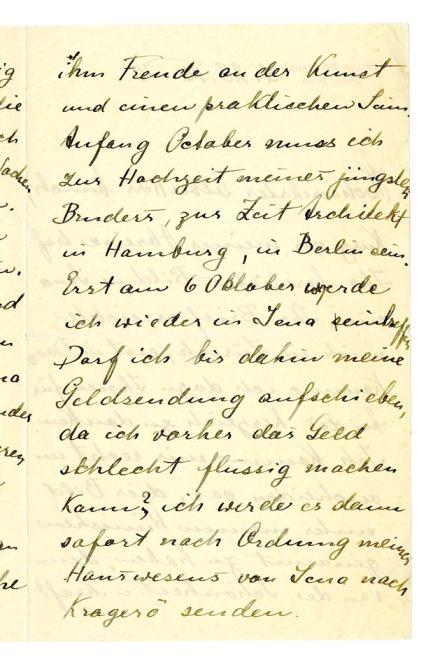 ihm Freude an der Kunst
und einen praktischen Sinn.
Anfang October muss ich
zur Hochzeit meines jüngsten
Bruders, zur Zeit Architekt
in Hamburg, in Berlin sein.
Erst am 6 Oktober werde
ich wieder in Jena eintreffen
Darf ich bis dahin meine
Geldsendung aufschieben,
da ich vorher das Geld
schlecht flüssig machen
kann?, ich werde es dann
sofort nach Ordnung meines
Hauswesens von Jena nach
Kragerö senden.